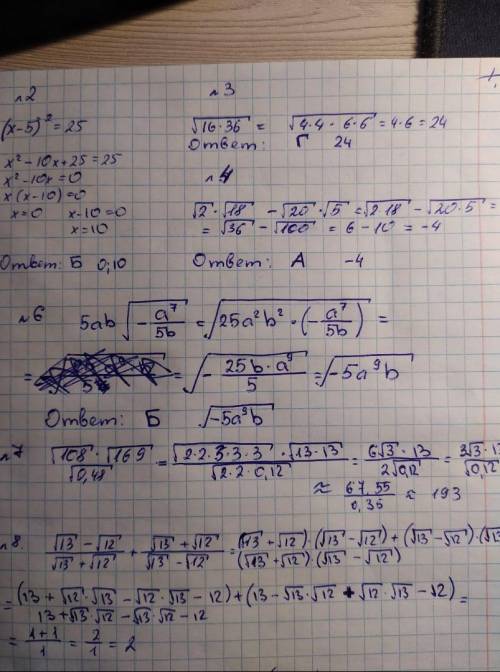 №2
(x-5)² = 25
x² - 10x + 25 = 25
x² - 10x = 0
x(x-10) = 0
x = 0   x - 10 = 0
x = 10
Ответ: Б 0; 10
№3
√(16·36) = √(4·4·6·6) = 4·6 = 24
Ответ: Г 24
№4
√2 · √18 - √20 · √5 = √(2·18) - √(20·5) =
= √36 - √100 = 6 - 10 = -4
Ответ: А -4
№6
5ab √(-a⁷/5b) = √(25a²b² · (-a⁷/5b)) =
= √(-25b·a⁹/5) = √(-5a⁹b)
Ответ: Б √(-5a⁹b)
№7
√108 · √169 / √0,48 = √(2·2·3·3·3) · √(13·13) / √(2·2·0,12) = 6√3 · 13 / 2√0,12 = 3√3 · 13 / √0,12
≈ 67,55/0,35 ≈ 193
№8.
(√13 - √12)/(√13 + √12) + (√13 + √12)/(√13 - √12) = (√13 + √12)·(√13 - √12) + (√13 - √12)·(√13 / (√13 + √12)·(√13 - √12)
= (13 + √12·√13 - √12·√13 - 12) + (13 - √13·√12 + √12·√13 - √2) / 13 + √13·√12 - √13·√12 - 12 =
= (1+1)/1 = 2/1 = 2